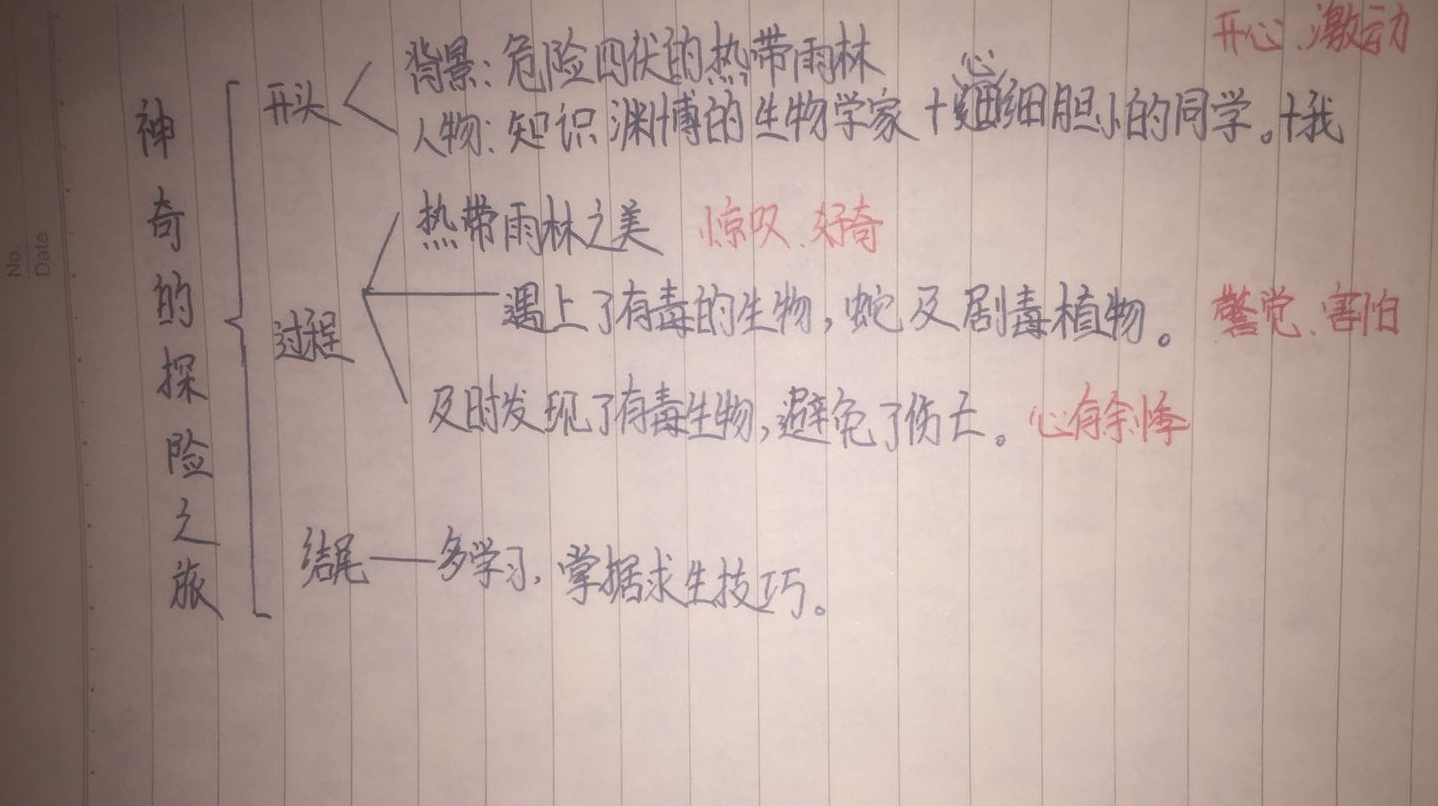 开心、激动
背景：危险四伏的热带雨林
开头
心
人物：知识渊博的生物学家+细胆小的同学。+我
神奇的探险之旅
热带雨林之美 惊叹、好奇
过程
遇上了有毒的生物，蛇及剧毒植物。 警觉、害怕
及时发现了有毒生物，避免了伤亡。 心有余悸
结尾——多学习，掌据求生技巧。
No.
Date